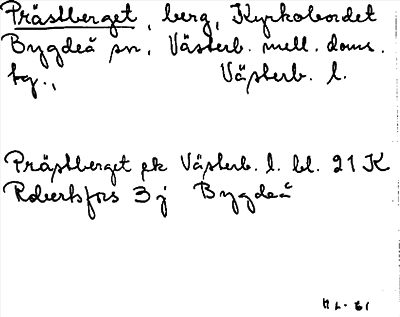 Prästberget, berg, Kyrkobordet
Bygdeå sn, Västerb. mell. doms.
tg., Västerb. l.
Prästberget ek Västerb. l. bl. 21 K
Robertsfors 3 j Bygdeå
H L - 61